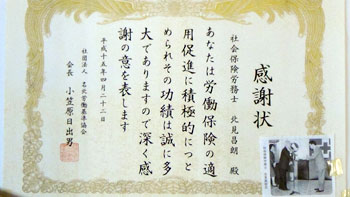 感謝状
社会保険労務士 北見昌朗 殿
あなたは労働保険の適
用促進に積極的につと
められその功績は誠に多
大でありますので深く感
謝の意を表します
平成十五年四月二十二日
社団法人 名北労働基準協会
会長 小笠原日出男